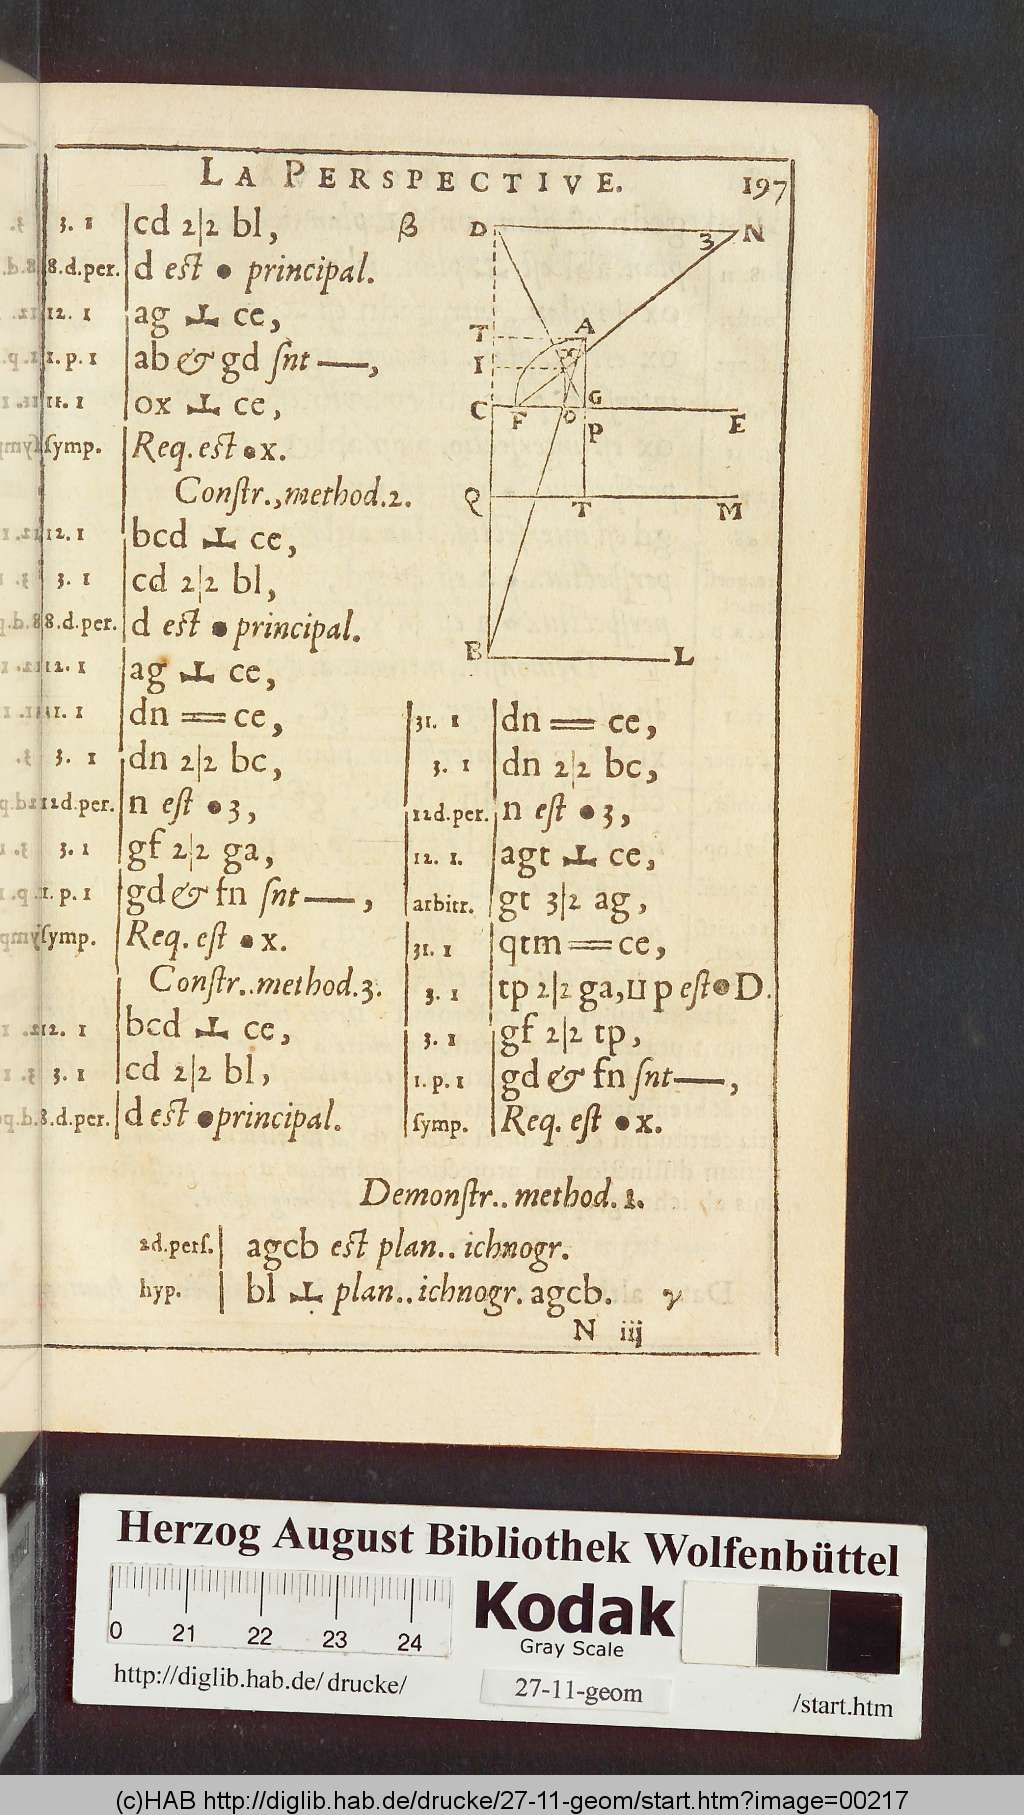 LA PERSPECTIVE. 197
3. 1 | cd 2|2 bl, β
8.d.per. | d est • principal.
12. 1 | ag ⊥ ce,
1. p. 1 | ab & gd ſnt —,
11. 1 | ox ⊥ ce,
ſymp. | Req. est • x.
Conſtr., method. 2.
12. 1 | bcd ⊥ ce,
3. 1 | cd 2|2 bl,
8.d.per. | d est • principal.
12. 1 | ag ⊥ ce,
31. 1 | dn = ce,
3. 1 | dn 2|2 bc,
12d.per. | n est • 3,
3. 1 | gf 2|2 ga,
1. p. 1 | gd & fn ſnt —,
ſymp. | Req. est • x.
Conſtr.. method. 3.
12. 1 | bcd ⊥ ce,
3. 1 | cd 2|2 bl,
8.d.per. | d est • principal.
D N
3
T A
I X
C F O G E
P
Q T M
B L
31. 1 | dn = ce,
3. 1 | dn 2|2 bc,
12d.per. | n est • 3,
12. 1. | agt ⊥ ce,
arbitr. | gt 3|2 ag,
31. 1 | qtm = ce,
3. 1 | tp 2|2 ga, ⊔ p est • D.
3. 1 | gf 2|2 tp,
1. p. 1 | gd & fn ſnt —,
ſymp. | Req. est • x.
Demonſtr.. method. 1.
2d.perſ. | agcb est plan.. ichnogr.
hyp. | bl ⊥ plan.. ichnogr. agcb. γ
N iij
Herzog August Bibliothek Wolfenbüttel
0 21 22 23 24
Kodak
Gray Scale
http://diglib.hab.de/ drucke/ 27-11-geom /start.htm
(c)HAB http://diglib.hab.de/drucke/27-11-geom/start.htm?image=00217